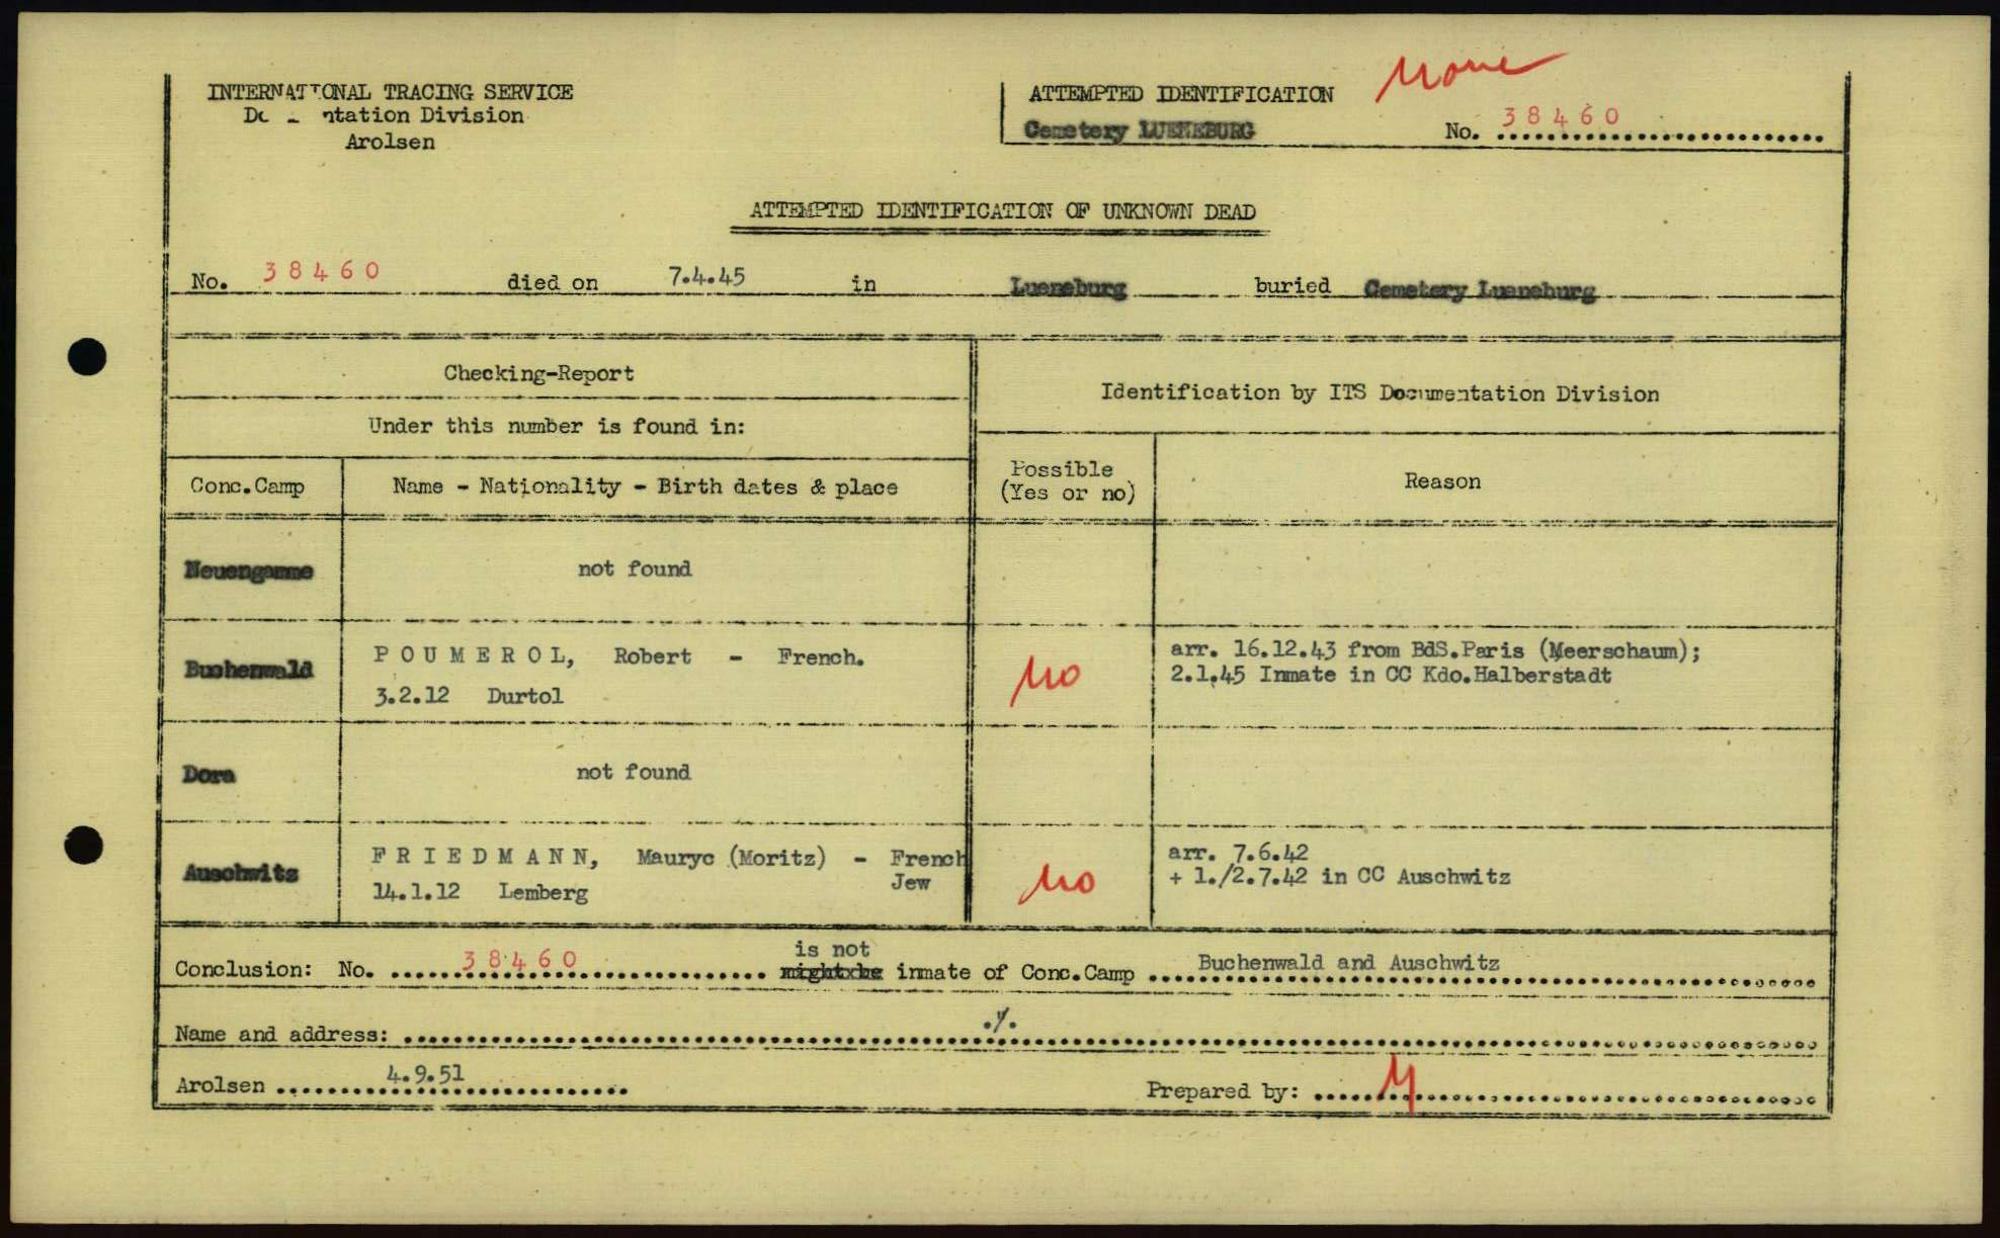 INTERNATIONAL TRACING SERVICE
Documentation Division
Arolsen
ATTEMPTED IDENTIFICATION
None
Cemetery LUENEBURG No. 38460
ATTEMPTED IDENTIFICATION OF UNKNOWN DEAD
No. 38460 died on 7.4.45 in Lueneburg buried Cemetery Lueneburg
Checking-Report
Under this number is found in:
Identification by ITS Documentation Division
Conc.Camp Name - Nationality - Birth dates & place
Possible
(Yes or no)
Reason
Neuengamme not found
Buchenwald
P O U M E R O L, Robert - French.
3.2.12 Durtol
no
arr. 16.12.43 from BdS.Paris (Meerschaum);
2.1.45 Inmate in CC Kdo.Halberstadt
Dora not found
Auschwitz
F R I E D M A N N, Mauryc (Moritz) - French
Jew
14.1.12 Lemberg
no
arr. 7.6.42
+ 1./2.7.42 in CC Auschwitz
is not
Conclusion: No. 38460 might be inmate of Conc.Camp Buchenwald and Auschwitz
Name and address: ./.
Arolsen 4.9.51 Prepared by: